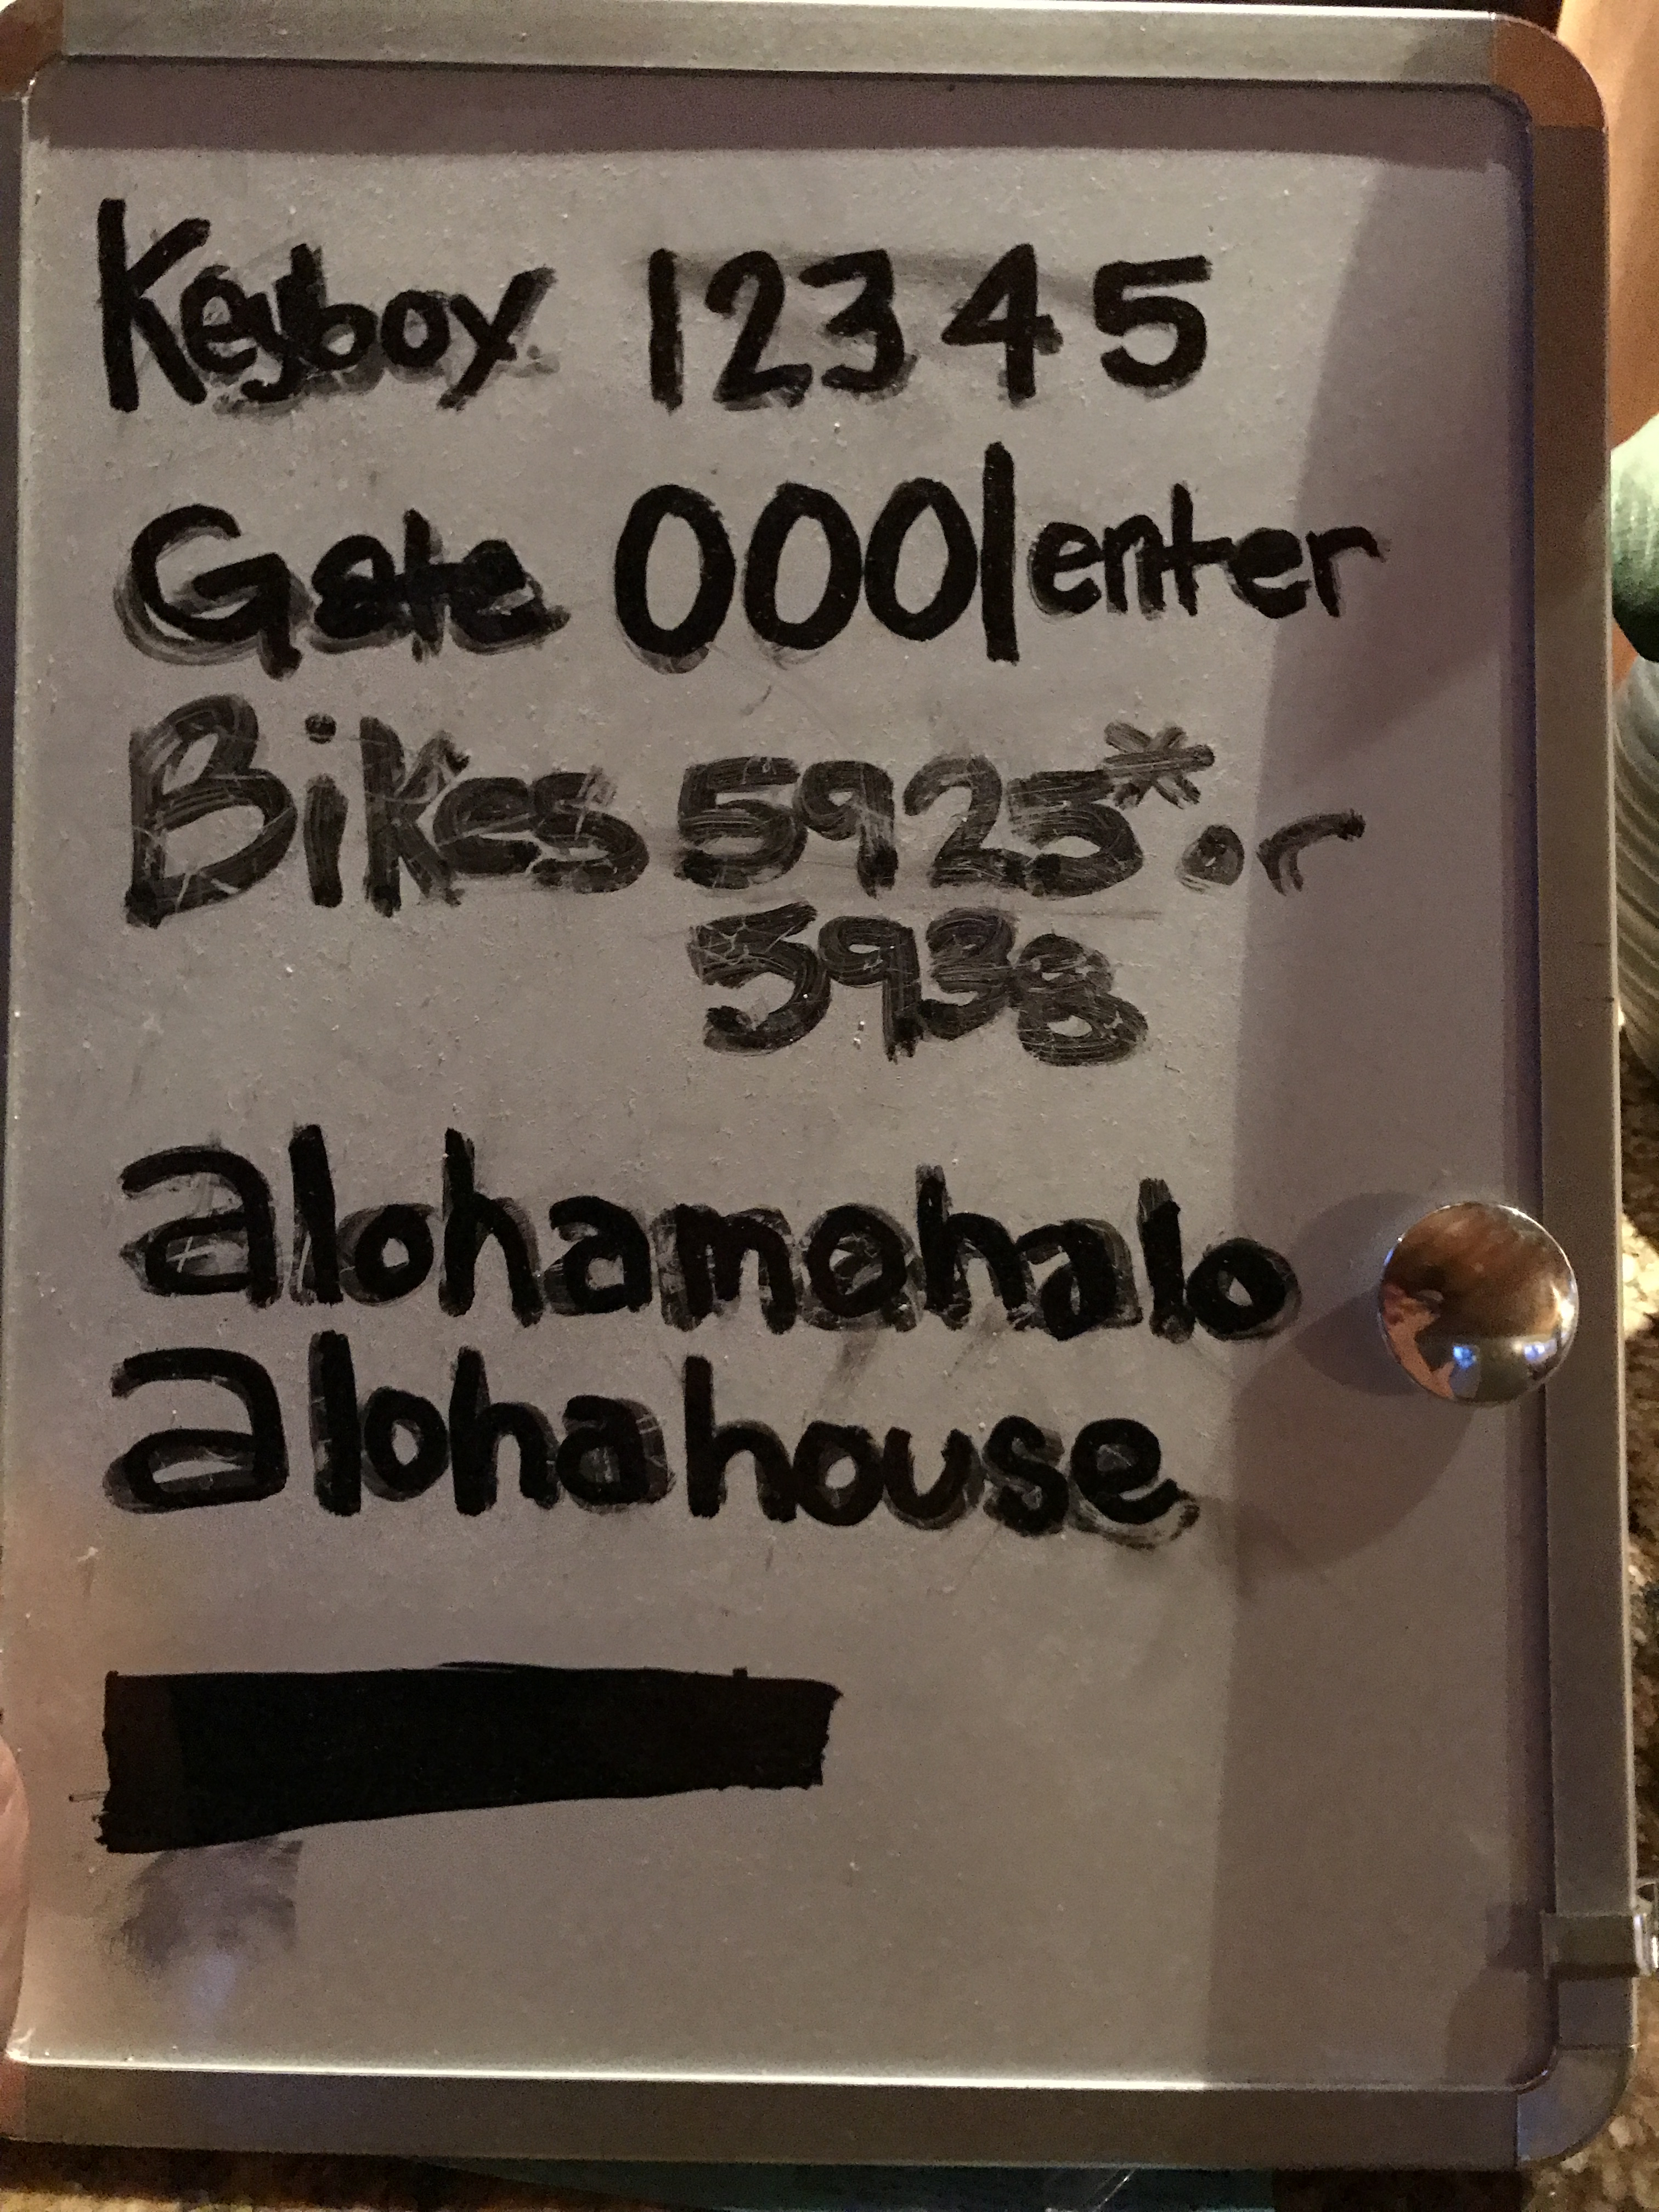 Keybox 12345
Gate 0001enter
Bikes 5925* or
5938
alohamohalo
alohahouse